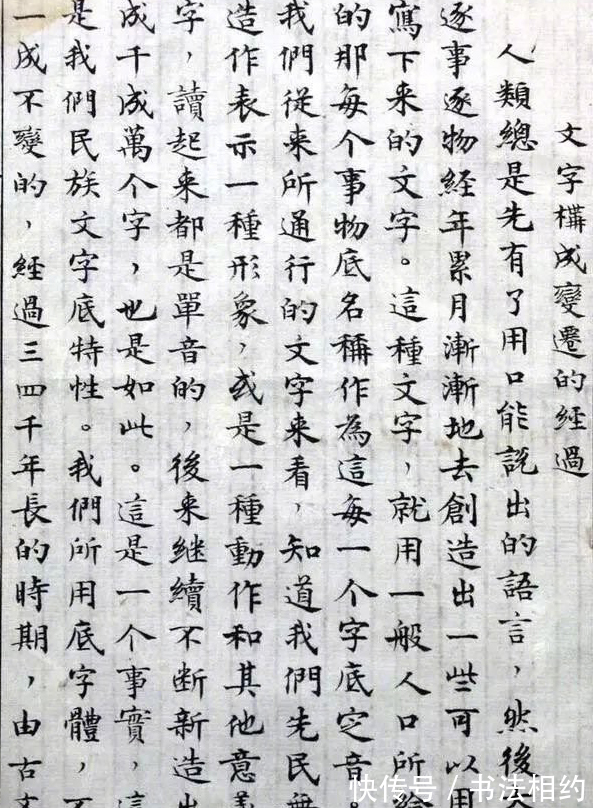 文字構成變遷的經過
人類總是先有了用口能說出的語言，然後
逐事逐物經年累月漸漸地去創造出一些可以用
寫下来的文字。這種文字，就用一般人口所
的那每个事物底名稱作為這每一个字底定音。
我們從来所通行的文字来看，知道我們先民
造作表示一種形象，或是一種動作和其他意
字，讀起来都是單音的，後来継續不断新造
成千成萬个字，也是如此。這是一个事實，
是我們民族文字底特性。我們所用底字體，
一成不變的，經過三四千年長的時期，由古
快传号／书法相约